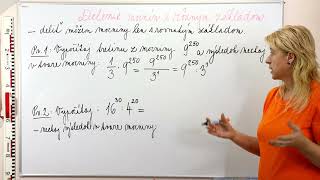 Delenie mocnín s rovnakým základom
– deliť môžem mocniny len s rovnakým základom
Pr.1: Vypočítaj tretinu z mocniny 9²⁵⁰ a výsledok nechaj
v tvare mocniny: 1/3 · 9²⁵⁰ = 9²⁵⁰/3¹ = 9²⁵⁰ : 3¹
Pr.2: Vypočítaj: 16³⁰ : 4²⁰ =
– nechaj výsledok v tvare mocniny